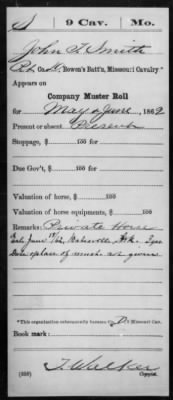 S | 9 Cav. | Mo.
John T. Smith
Pvt, Co. H, Bowen's Batt'n, Missouri Cavalry*
Appears on
Company Muster Roll
for May & June, 1862
Present or absent Present
Stoppage, $ 100 for
Due Gov't, $ 100 for
Valuation of horse, $ 100
Valuation of horse equipments, $ 100
Remarks: Private Horse
June /62, Batesville, Ark.
place of muster as given
*This organization subsequently became Co. D, 9 Missouri Cav.
Book mark:
T. Walker
(358) Copyist.